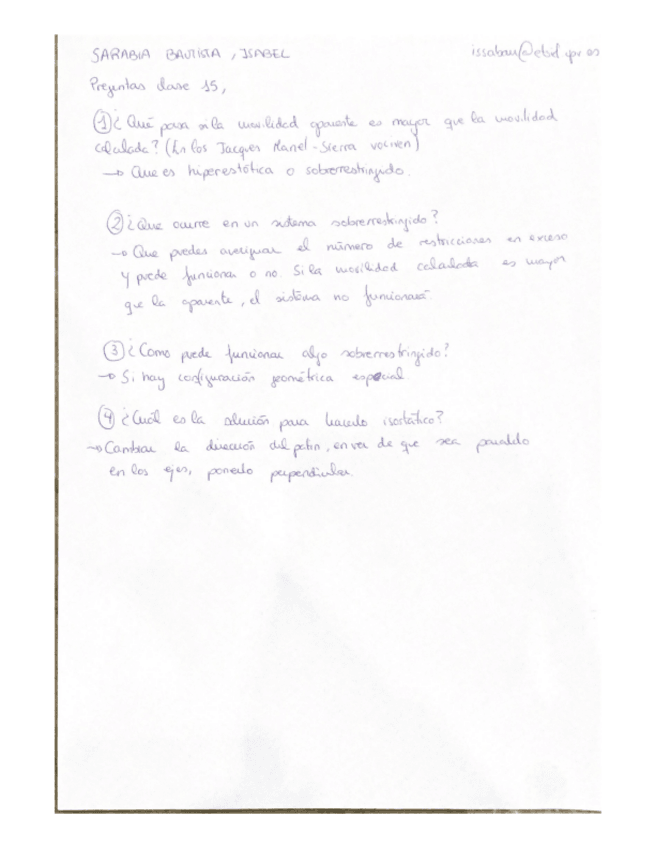 SARABIA BAUTISTA, ISABEL
Preguntas clase 15,
① ¿Qué pasa si la movilidad aparente es mayor que la movilidad
calculada? (En los Jacques
→ Que es hiperestática o sobrerrestringido.
② ¿Que ocurre en un sistema sobrerrestringido?
→ Que puedes averiguar el número de restricciones en exceso
y puede funcionar o no. Si la movilidad calculada es mayor
que la aparente, el sistema no funcionará.
③ ¿Como puede funcionar algo sobrerrestringido?
→ Si hay configuración geométrica especial
④ ¿Cuál es la solución para hacerlo isostático?
→ Cambiar la dirección del patín, en vez de que sea paralelo
en los ejes, ponerlo perpendicular.